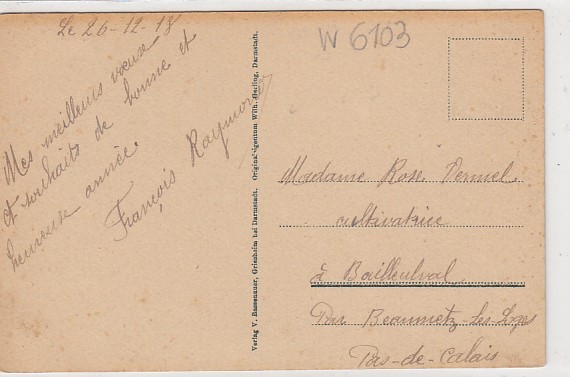 Le 26-12-18
W 6103
Mes meilleurs vœux
et souhaits de bonne et
heureuse année.
François Raymond
Verlag V. Bassenauer, Griesheim bei Darmstadt. Originaleigentum Wilh. Gerling, Darmstadt.
Madame Rose
cultivatrice
à Bailleulval
Par Beaumetz-les-Loges
Pas-de-Calais